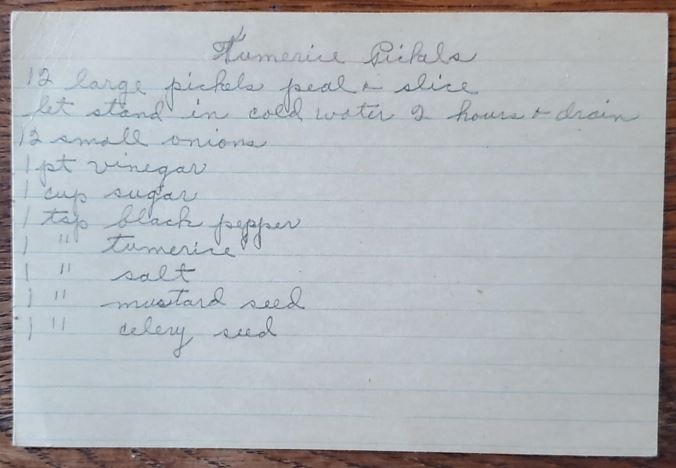 Tumerice Pickels
12 large pickels peal & slice
let stand in cold water 2 hours & drain
12 small onions
1 pt vinegar
1 cup sugar
1 tsp black pepper
1 " tumerice
1 " salt
1 " mustard seed
1 " celery seed